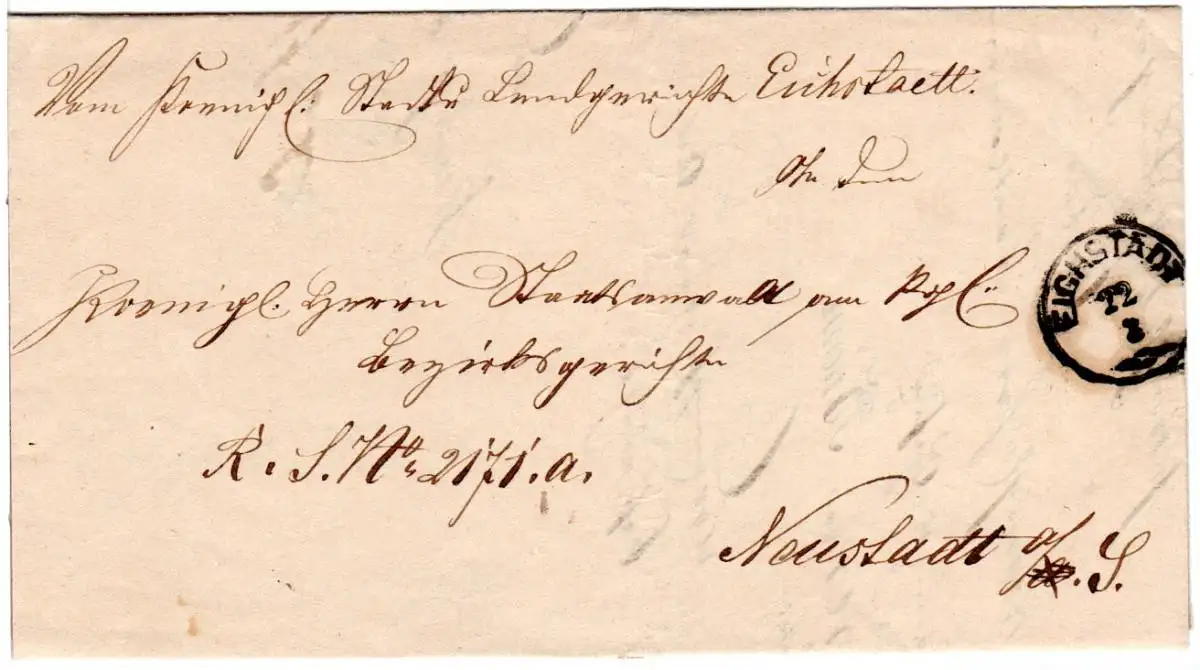 Vom Koenigl: Stadt u Landgerichte Eichstaett.
An den
EICHSTÄDT
22
8
Koenigl: Herrn Staatsanwalt am Kgl:
Bezirksgerichte
R. S. No 2171. a.
Neustadt a/ . S.